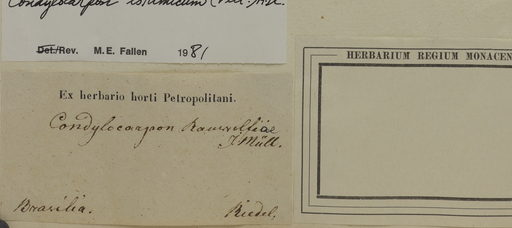 Condylocarpon isthmicum (Vell.) A.DC.
Det./Rev. M.E. Fallen 1981
HERBARIUM REGIUM MONACEN
Ex herbario horti Petropolitani.
Condylocarpon Rauwolfiae
J. Müll.
Brasilia. Riedel.